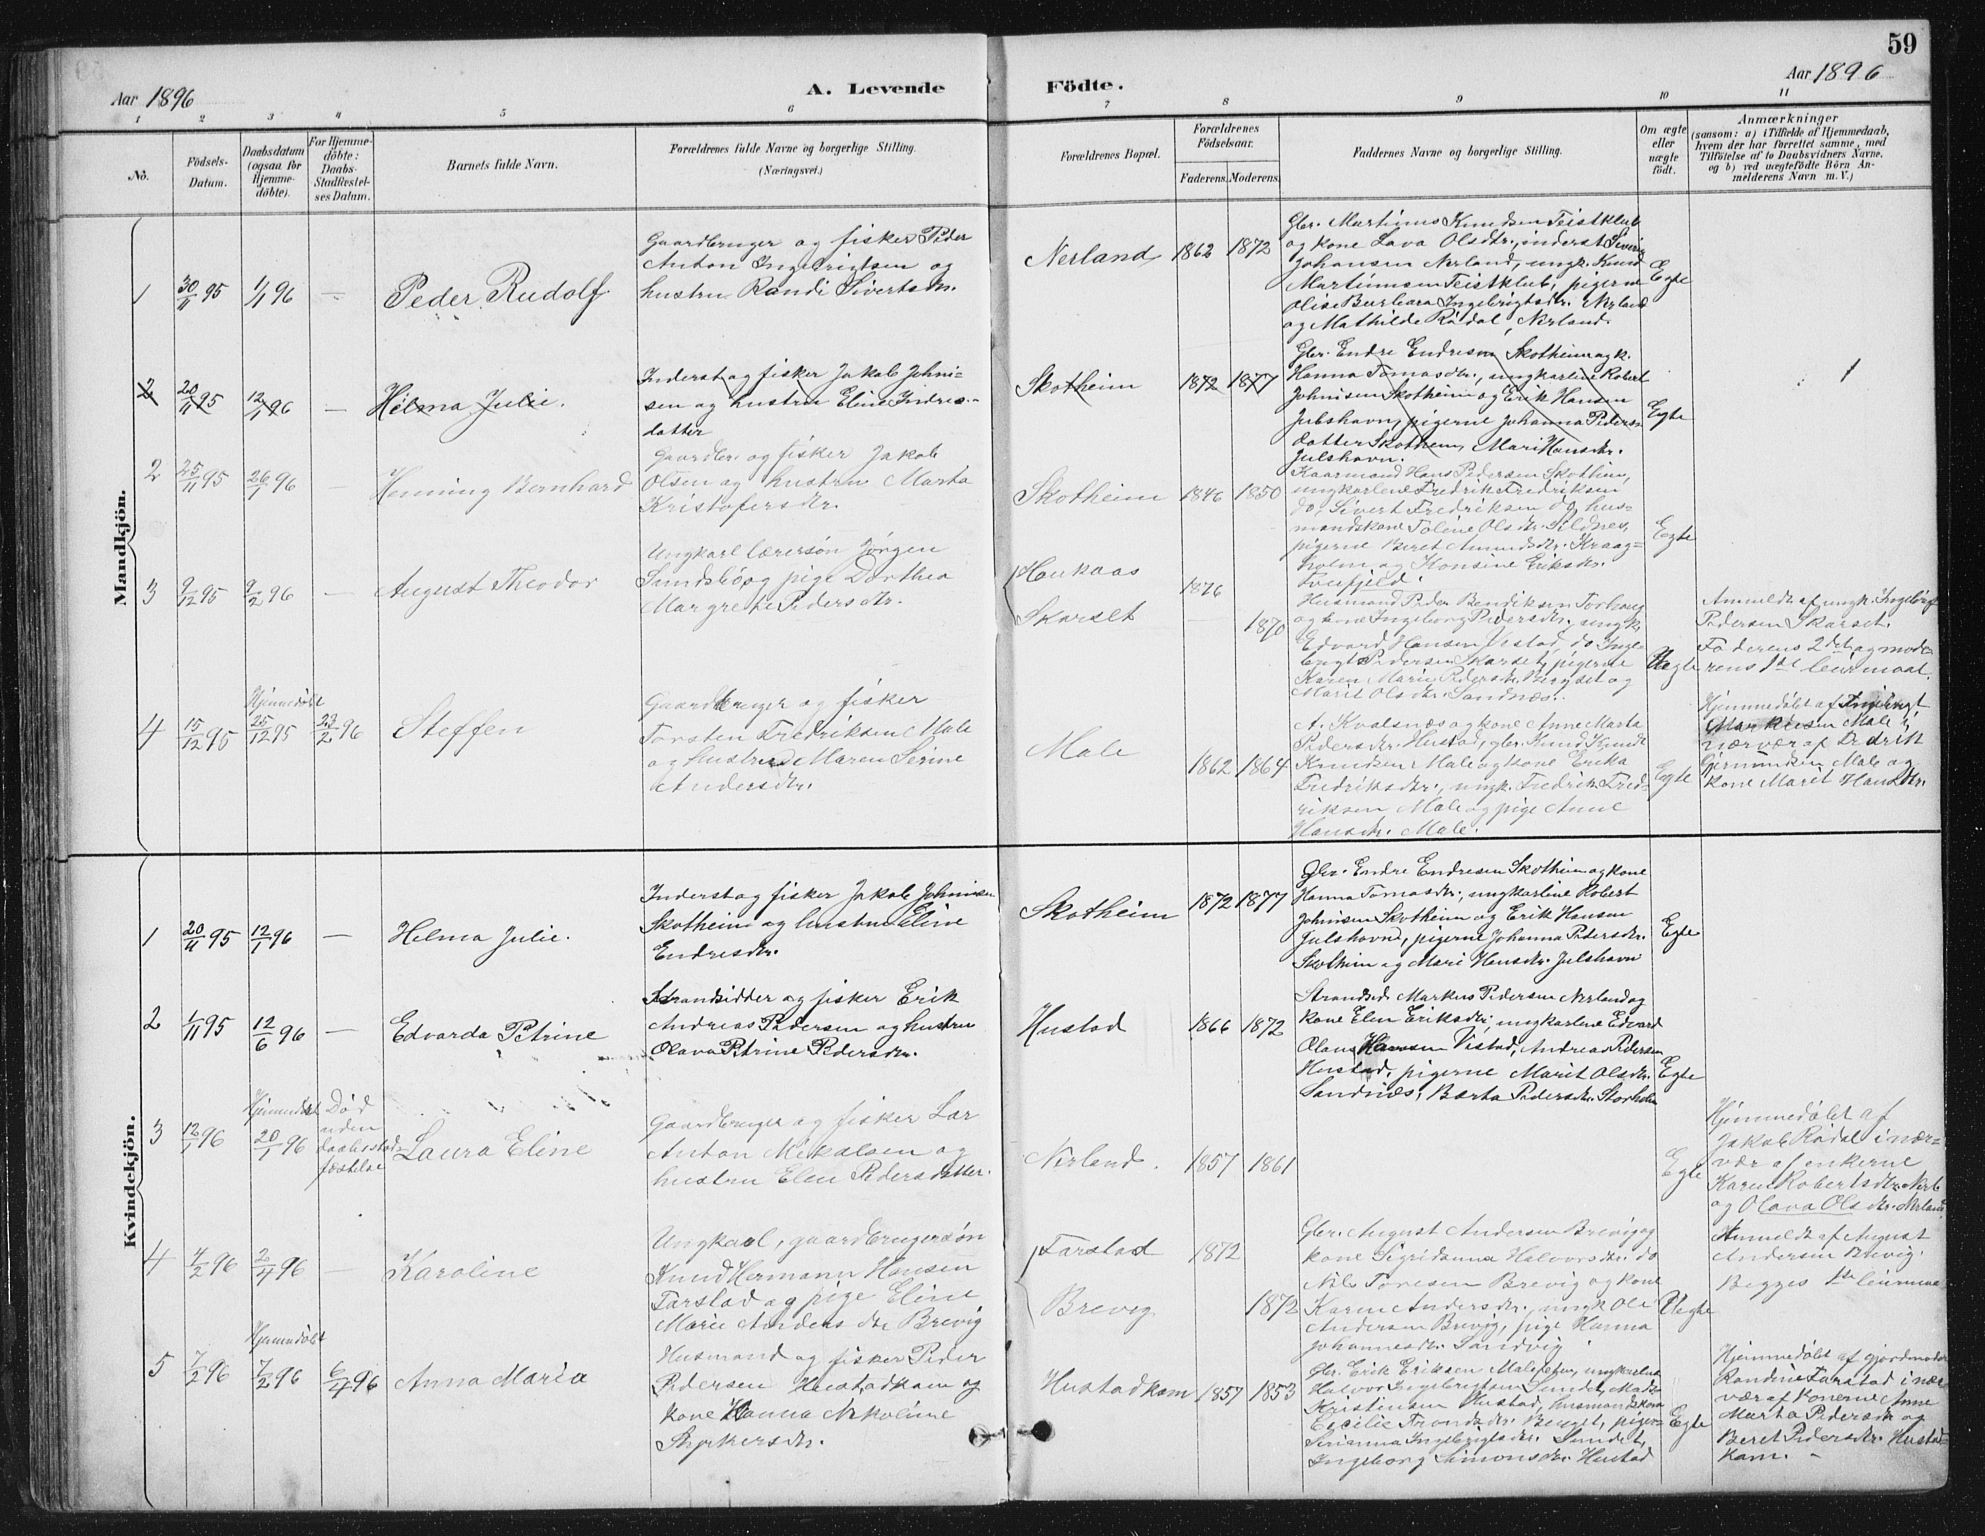 59
Aar 1896
A. Levende
Födte.
Aar 1896
1 2 3 4 5 6 7 8 9 10 11
No.
Födsels-Datum.
Daabsdatum (ogsaa for Hjemmedöbte).
For Hjemmedöbte: Daabs-Stadfæstelses Datum.
Barnets fulde Navn.
Forældrenes fulde Navne og borgerlige Stilling. (Næringsvei.)
Forældrenes Bopæl.
Forældrenes Födselsaar.
Faderens. Moderens.
Faddernes Navne og borgerlige Stilling.
Om ægte eller uægte födt.
Anmærkninger
(saasom: a) i Tilfælde af Hjemmedaab, hvem der har forrettet samme, med Tilföielse af to Daabsvidners Navne, og b) ved uægtefödte Börn Anmelderens Navn m. V.)
Mandkjön.
1
30/11 95
1/1 96
—
Peder Rudolf.
Gaardbruger og fisker Peder
Anton Ingebrigtsen og
hustru Randi Sivertsdr.
Nerland
1862
1872
Gbr. Martinus Knudsen Teistklub
og kone Lava Olsdtr., inderst Sivert
Johansen Nerland, ungk. Knud
Martinusen Teistklub, pigerne
Olise Barbara Ingebrigtsdr. Nerland
og Mathilde Rödal, Nerland.
Egte
2
20/11 95
12/1 96
—
Helma Julie.
Inderst og fisker Jakob Johni-
sen og hustru Eline Endres-
datter
Skotheim
1872
1877
Gbr. Endre Endresen Skotheim og k.
Hanna Tomasdr., ungkarlene Robert
Johnisen Skotheim og Erik Hansen
Julshavn, pigerne Johanna Peders-
datter Skotheim, Mari Hansdr.
Julshavn.
Egte
1
2
25/11 95
26/1 96
—
Henning Bernhard
Gaardbr. og fisker Jakob
Olsen og hustru Marta
Kristofersdr.
Skotheim
1846
1850
Kaarmand Hans Pedersen Skotheim,
ungkarlene Fredrik Fredriksen
do, Sivert Fredriksen do, hus-
mandskone Toline Olsdr. Sildnes,
pigerne Beret Amundsdr. Kraag-
holm og Konsine Eriksdr.
Tverfjeld.
Egte
3
9/12 95
9/2 96
—
August Theodor
Ungkarl lærersøn Jørgen
Sundsbö og pige Dorthea
Margrete Pedersdtr.
Haukaas
Skarset
1876
1870
Husmand Peder Bendiksen Torhaug
og kone Ingeborg Pedersdr., ungk.
Edvard Hansen Vestad, do Inge-
brigt Pedersen Skarset, pigerne
Karen Marie Pedersdr. Bergset og
Marit Olsdr. Sandnæs.
Uegte
Anmeldt af ungk. Ingebrigt
Pedersen Skarset.
Faderens 2det og mode-
rens 1ste leiermaal.
4
15/12 95
Hjemmedöbt
25/12 95
23/2 96
Steffen
Gaardbruger og fisker
Torsten Fredriksen Male
og hustru Maren Serine
Andersdr.
Male
1862
1864
A. Kvalsnes og kone Anne Marta
Pedersdr. Hustad, gbr. Knud Knudt
Knudsen Male og kone Erika
Fredriksdr., ungk. Fredrik Fred-
riksen Male og pige Anne
Hansdr. Male.
Egte
Hjemmedöbt af Ingebrigt
Markusen Male i
nærvær af Didrik
Gjermundsen Male og
kone Marit Hansdtr.
Kvindekjön.
1
20/11 95
12/1 96
—
Helma Julie.
Inderst og fisker Jakob Johnisen
Skotheim og hustru Eline
Endresdr.
Skotheim
1872
1877
Gbr. Endre Endresen Skotheim og kone
Hanna Tomasdr., ungkarlene Robert
Johnisen Skotheim og Erik Hansen
Julshavn, pigerne Johanna Pedersdr.
Skotheim og Mari Hansdr. Julshavn
Egte
2
1/11 95
12/6 96
—
Edvarda Petrine
Strandsidder og fisker Erik
Andreas Pedersen og hustru
Olava Petrine Pedersdr.
Hustad
1866
1872
Strands. Markus Pedersen Nerland og
kone Elen Eriksdr., ungkarlene Edvard
Olaus Hansen Vestad, Andreas Pedersen
Hustad, pigerne Marit Olsdr.
Sandnæs, Barta Pedersdr. Storholm
Egte
3
12/1 96
Hjemmedöbt
20/1 96
Død
uden
daabsstad-
fæstelse
Laura Eline
Gaardbruger og fisker Lar
Anton Mikalsen og
hustru Elen Pedersdatter.
Nerland.
1857
1861
Egte
Hjemmedöbt af
Jakob Rödal i nær-
vær af enkerne
Karen Robertsdr. Nerl.
og Olava Olsdr. Nerland
4
4/2 96
2/4 96
—
Karoline
Ungkarl, gaardbrugersön
Knud Hermann Hansen
Farstad og pige Eline
Marie Andersdr Brevig
Farstad
Brevig
1872
1872
Gbr. August Andersen Brevig og
kone Sigridanna Halvorsdr. do
Nils Toresen Brevig og kone
Karen Andersdr., ungk. Ole
Andersen Brevig, pige Hanna
Johannesdr. Sandvig
Uegte
Anmeldt af August
Andersen Brevig.
Begges 1ste leiermaal
5
7/2 96
Hjemmedöbt
7/2 96
6/4 96
Anna Maria
Husmand og fisker Peder
Pedersen Hustadkam og
kone Hanna Nikoline
Styrkersdr.
Hustadkam
1857
1853
Gbr. Erik Eriksen Male, ungkarlene
Halvor Ingebrigtsen Sundet, Mads
Kristensen Hustad, husmandskone
Cecilie Trondsdr. Berget, piger-
Serianna Ingebrigtsdr. Sundet,
Ingeborg Simonsdr. Hustad
Egte
Hjemmedöbt af gjordmoder
Randine Farstad i nær-
vær af konerne Anne
Marta Pedersdr og
Beret Pedersdr. Hustad-
kam. —